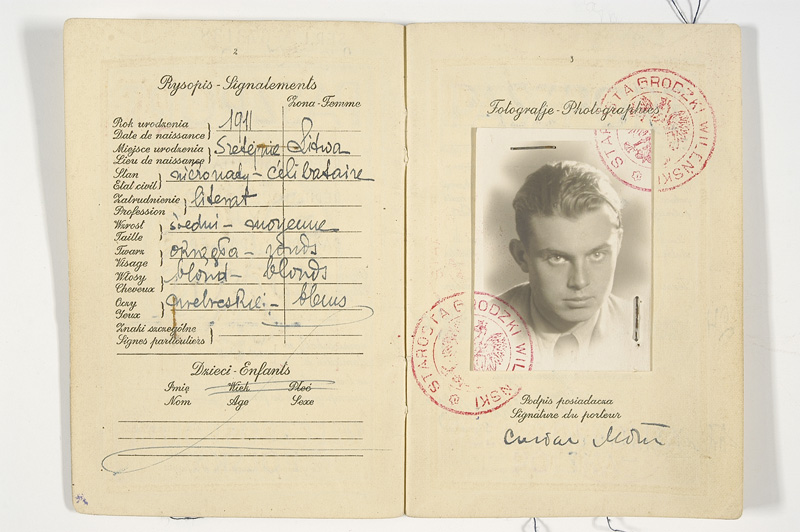 2
Rysopis - Signalements
Żona - Femme
Rok urodzenia
Date de naissance
1911
Miejsce urodzenia
Lieu de naissance
Szetejnie Litwa
Stan
Etat civil
nieżonaty - célibataire
Zatrudnienie
Profession
literat
Wzrost
Taille
średni - moyenne
Twarz
Visage
okrągła - ronds
Włosy
Cheveux
blond - blonds
Oczy
Yeux
niebieskie - bleus
Znaki szczególne
Signes particuliers
Dzieci - Enfants
Imię Wiek Płeć
Nom Age Sexe
3
Fotografje - Photographies
STAROSTA GRODZKI WILEŃSKI
STAROSTA GRODZKI WILEŃSKI
Podpis posiadacza
Signature du porteur